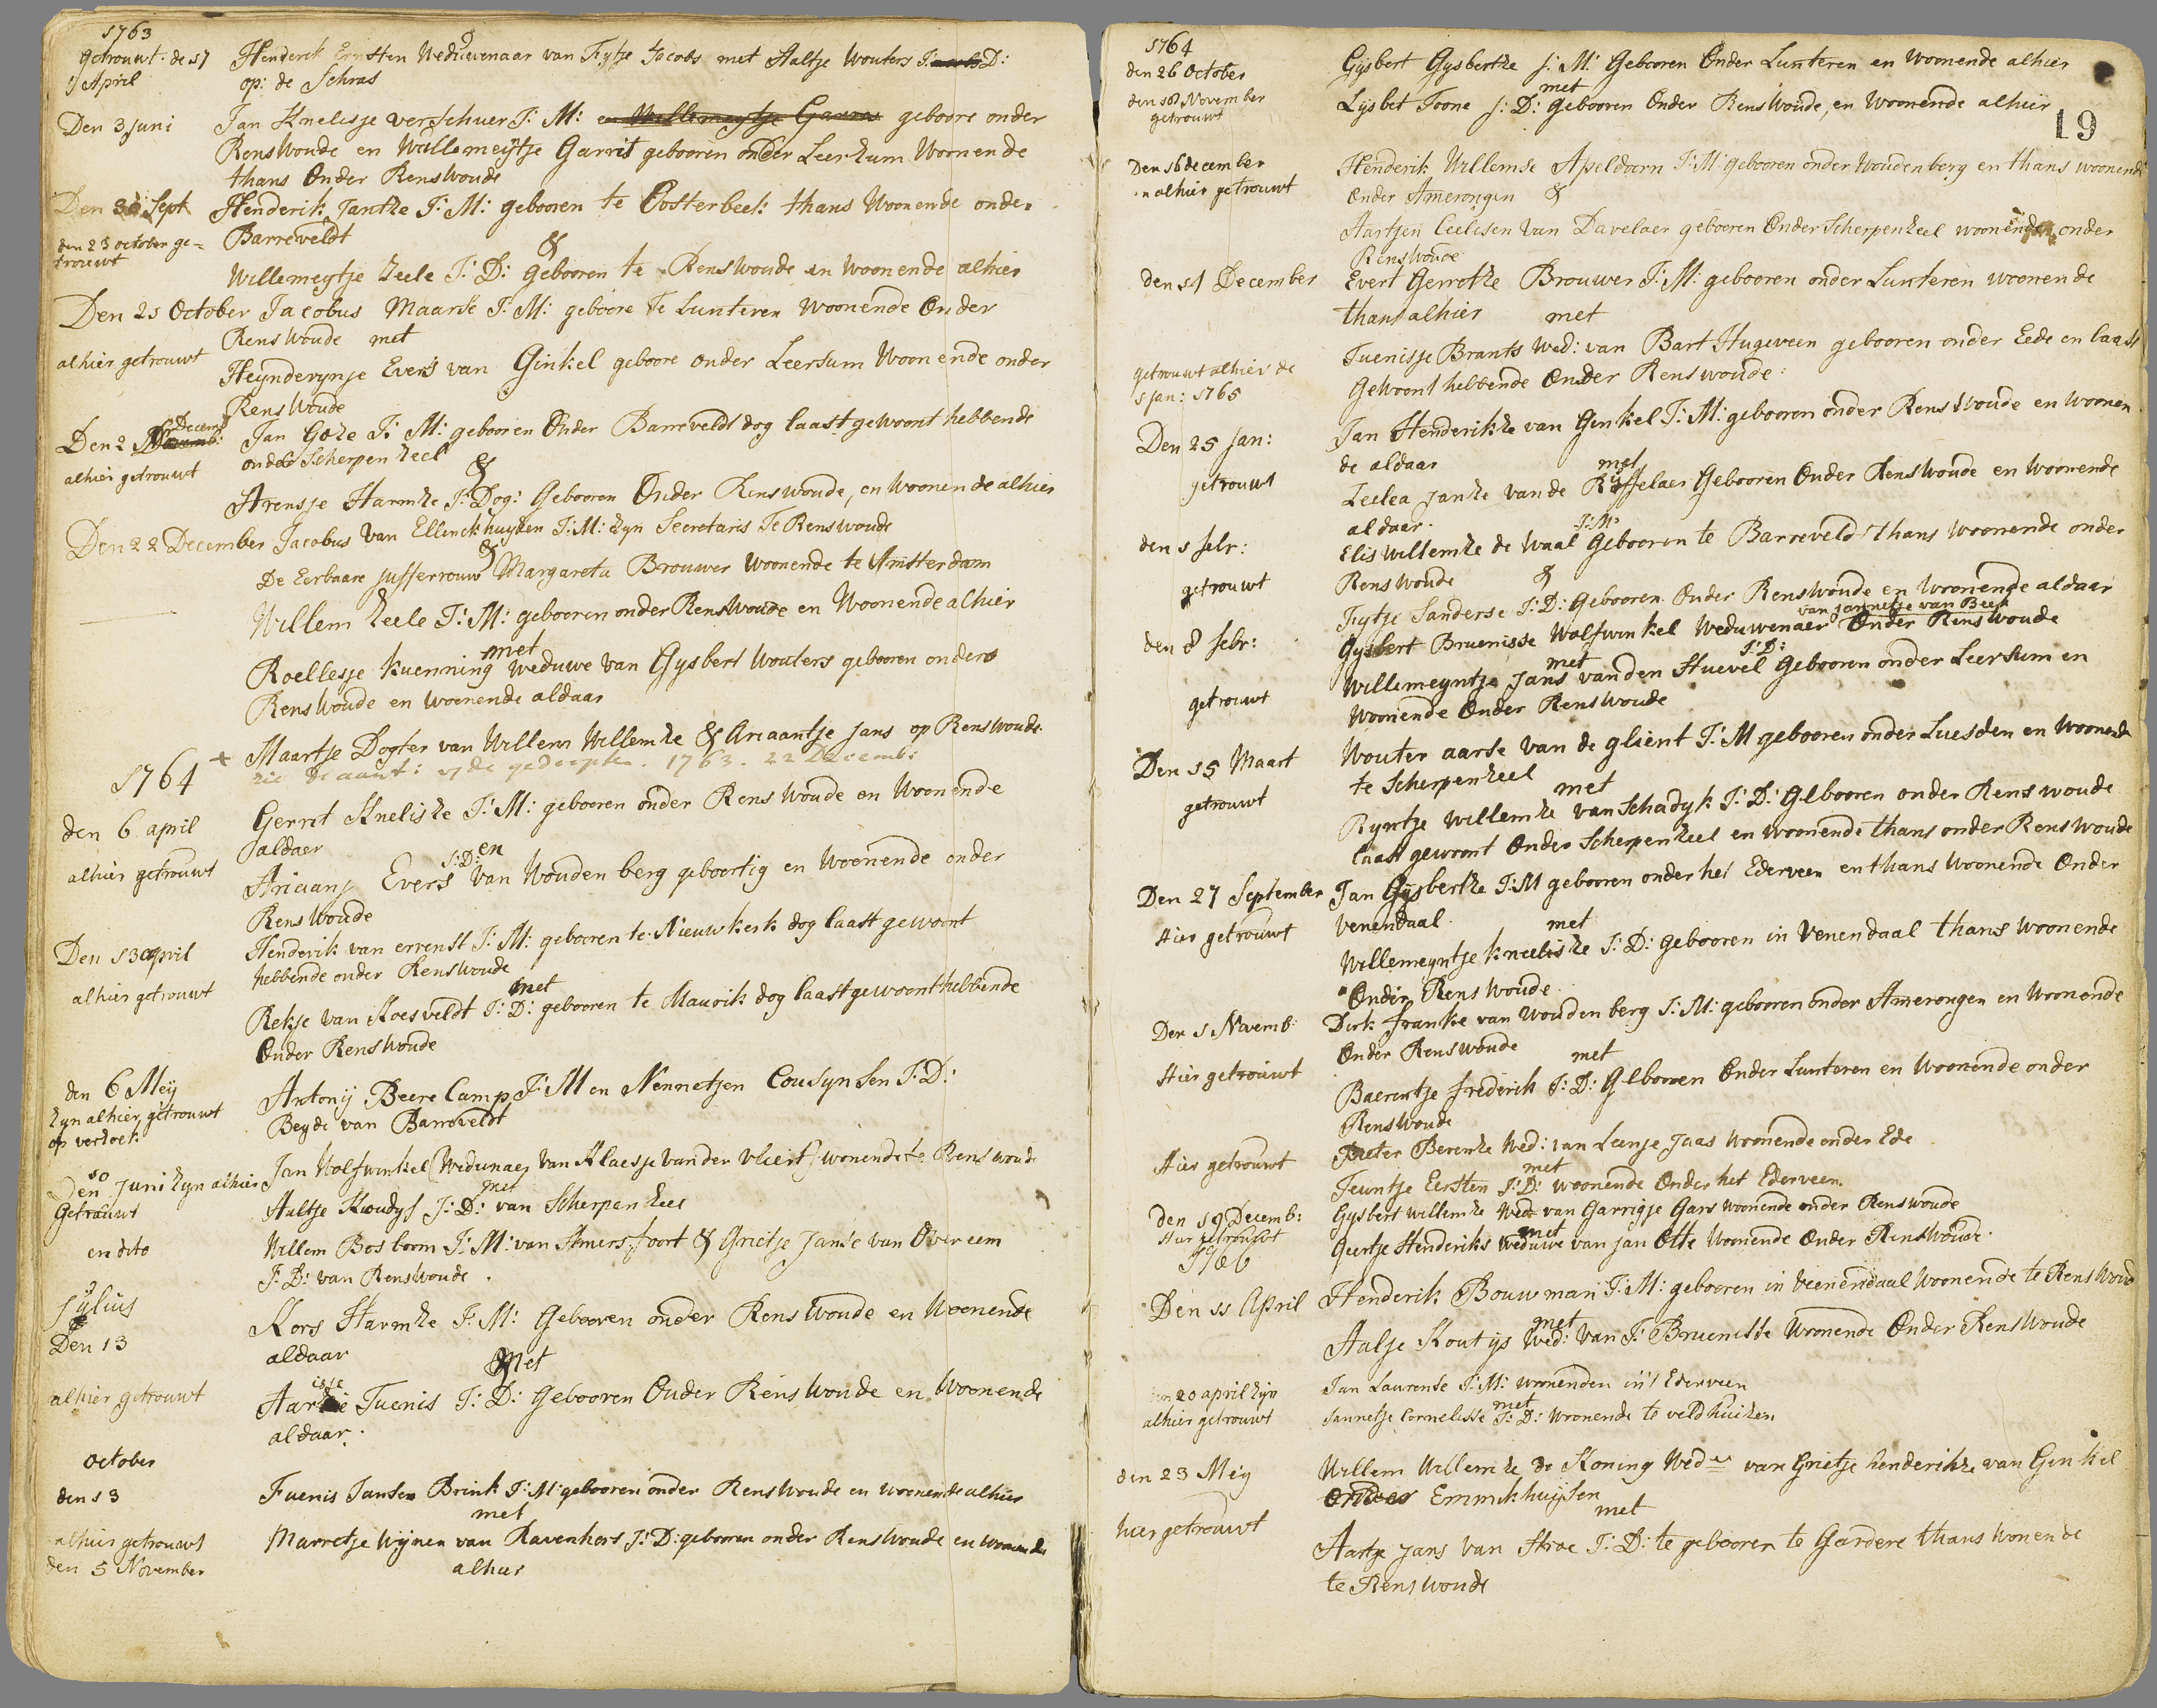 1763
Getrouwt: de 17 Henderik Ernsten Weduwenaar van Fytje Jacobs met Aaltje Wouters J: D:
April op: de Schras
Den 3 Juni Jan Knelisje verschuer J: M: en Willemeytje Garras geboore onder
Renswoude en Willemeijtje Garrit gebooren onder Leerzum Woonende
thans Onder Renswoude
Den 30 Sept Henderik Jantze J: M: gebooren te Oosterbeek thans Woonende onder
den 23 october ge= Barreveldt &
trouwt
Willemeytje Zeele J: D: Gebooren te Renswoude en woonende alhier
Den 25 October Jacobus Maarse J: M: geboore Te Lunteren Woonende Onder
Renswoude met
alhier getrouwt Heynderynje Evers van Ginkel geboore onder Leersum Woonende onder
Renswoude
Den 2 Decemb: Jan Goze J: M: gebooren Onder Barreveldt dog laast gewoont hebbende
alhier getrouwt onder Scherpenzeel &
Arensje Harmze J: Dog: Gebooren Onder Renswoude, en woonende alhier
Den 22 December Jacobus van Ellenckhuyzen J: M: zyn Secretaris Te Renswoude
&
De Eerbaare Jufferrouw Margareta Brouwer woonende te Amsterdam
Willem Zeele J: M: gebooren onder Renswoude en Woonende alhier
met
Roellesje Kuenning Weduwe van Gysbert Wouters gebooren onder
Renswoude en woonende aldaar
+ Maartje Dogter van Willem Willemze & Ariaantje Jans op Renswoude
zie de aant: op de gedoopten. 1763. 22 Decemb:
1764
den 6 april Gerret Knelisze J: M: gebooren onder Renswoude en Woonende
aldaer en
alhier getrouwt Ariaanj Evers J: D: Van Woudenberg geboortig en Woonende onder
Renswoude
Den 13 april Henderik van errenst J: M: gebooren te Nieuwkerk dog laast gewoont
hebbende onder Renswoude
alhier getrouwt met
Rekje van Roesveldt J: D: gebooren te Maurik dog laast gewoont hebbende
Onder Renswoude
den 6 Meij Antonij Beere Camp J: M en Nennetjen Cousynsen J: D:
Zyn alhier getrouwt Beyde van Barreveldt
op verzoek
Den 10 Juni zyn alhier Jan Wolfswinkel (Wedunaer van Klaesje van der Vliert) wonende te Renswoude
met
Getrauwt Aaltje Koudys J: D: van Scherpenzeel
en dito Willem Bosboom J: M: van Amersfoort & Grietje Janse van Overeem
J: D: van Renswoude.
Jylius
Den 13 Kors Harmze J: M: Gebooren onder Renswoude en Woonende
aldaar Met
alhier getrouwt Aartje Tuenis J: D: Gebooren Onder Renswoude en Woonende
aldaar.
october
den 13 Tuenis Jansen Brink J: M: gebooren onder Renswoude en woonende alhier
met
alhier getrouwt Marretje Wijnen van Ravenhors J: D: gebooren onder Renswoude en woonende
den 5 November alhier
1764
den 26 October Gysbert Gysbertze J: M: Gebooren Onder Lunteren en woonende alhier
met
den 18 November Lysbet Toone J: D: Gebooren Onder Renswoude, en Woonende alhier
getrouwt
19
Den 16 december Henderik Willemse Apeldoorn J: M: gebooren onder Woudenberg en thans woonende
en alhier getrouwt onder Amerongen &
Aartjen Ceelesen van Davelaer gebooren Onder Scherpenzeel woonende onder
Renswoude
den 21 December Evert Gerretze Brouwer J: M: gebooren onder Lunteren woonende
thans alhier met
Tuenisje Brants Wed: van Bart Hugeveen gebooren onder Eede en laast
getrouwt alhier de Gewoont hebbende Onder Renswoude:
5 jan: 1765
Den 25 jan: Jan Henderikze van Genkel J: M: gebooren onder Renswoude en woonen
de aldaar met
getrouwt Ceelea Janze van de Ryffelaer Gebooren Onder Renswoude en Woonende
aldaar.
den 1 febr: Elis Willemze de Waal J: M: Gebooren te Barreveld Thans Woonende onder
getrouwt Renswoude &
Fytje Sanderse J: D: Gebooren Onder Renswoude en Woonende aldaar
van Jannetje van Beek
den 8 febr: Gysbert Bruenisse Wolfswinkel Weduwenaer Onder Renswoude
met J: D:
Willemeyntje Jans van den Huevel Gebooren onder Leersum en
getrouwt Woonende Onder Renswoude
Den 15 Maart Wouter aarse van de glient J: M gebooren onder Luesden en woonende
te Scherpenzeel met
getrouwt Ryntje Willemze van Schadyk J: D: Gebooren onder Renswoude
laast gewoont Onder Scherpenzeel en woonende thans onder Renswoude
Den 27 September Jan Gijsbertze J: M gebooren onder het Ederveen en thans woonende Onder
Hier getrouwt Venendaal. met
Willemeyntje Kneelisze J: D: gebooren in Venendaal thans woonende
Onder Renswoude.
Den 1 Novemb: Derk franke van Woudenberg J: M: gebooren onder Amerongen en Woonende
Onder Renswoude met
Hier getrouwt Baerentje frederik J: D: Gebooren Onder Lunteren en Woonende onder
Renswoude
Hier getrouwt Peeter Berenze Wed: van Leenje Jaas woonende onder Ede
met
Teuntje Eersten J: D: woonende Onder het Ederveen.
den 19 Decemb: Gysbert Willemze Wed van Garrigje Gars woonende onder Renswoude
Hier getrouwt met
Geertje Henderiks Weduwe van Jan Otte Woonende Onder Renswoude.
1766
Den 11 April Henderik Bouwman J: M: gebooren in Veenendaal Woonende te Renswoud
met
Aalje Koutijs Wed: van J: Bruenisse Wonende Onder Renswoude
den 20 april zyn Jan Laurense J: M: woonenden in't Ederveen
met
alhier getrouwt Jannetje Cornelisse J: D: Wonende te veldhuizen
den 23 Meij Willem Willemze de Koning Wed van Grietje henderikze van Ginkel
onder Emmikhuijsen
met
hier getrouwt Aartje Jans van Stroe J: D: te gebooren te Gardere thans wonende
te Renswoude